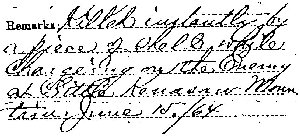 Remarks Killed instantly by
a piece of Shell, while
Chargeing on the Enemy
at Battle Kenasaw Moun
tain. June 15. /64